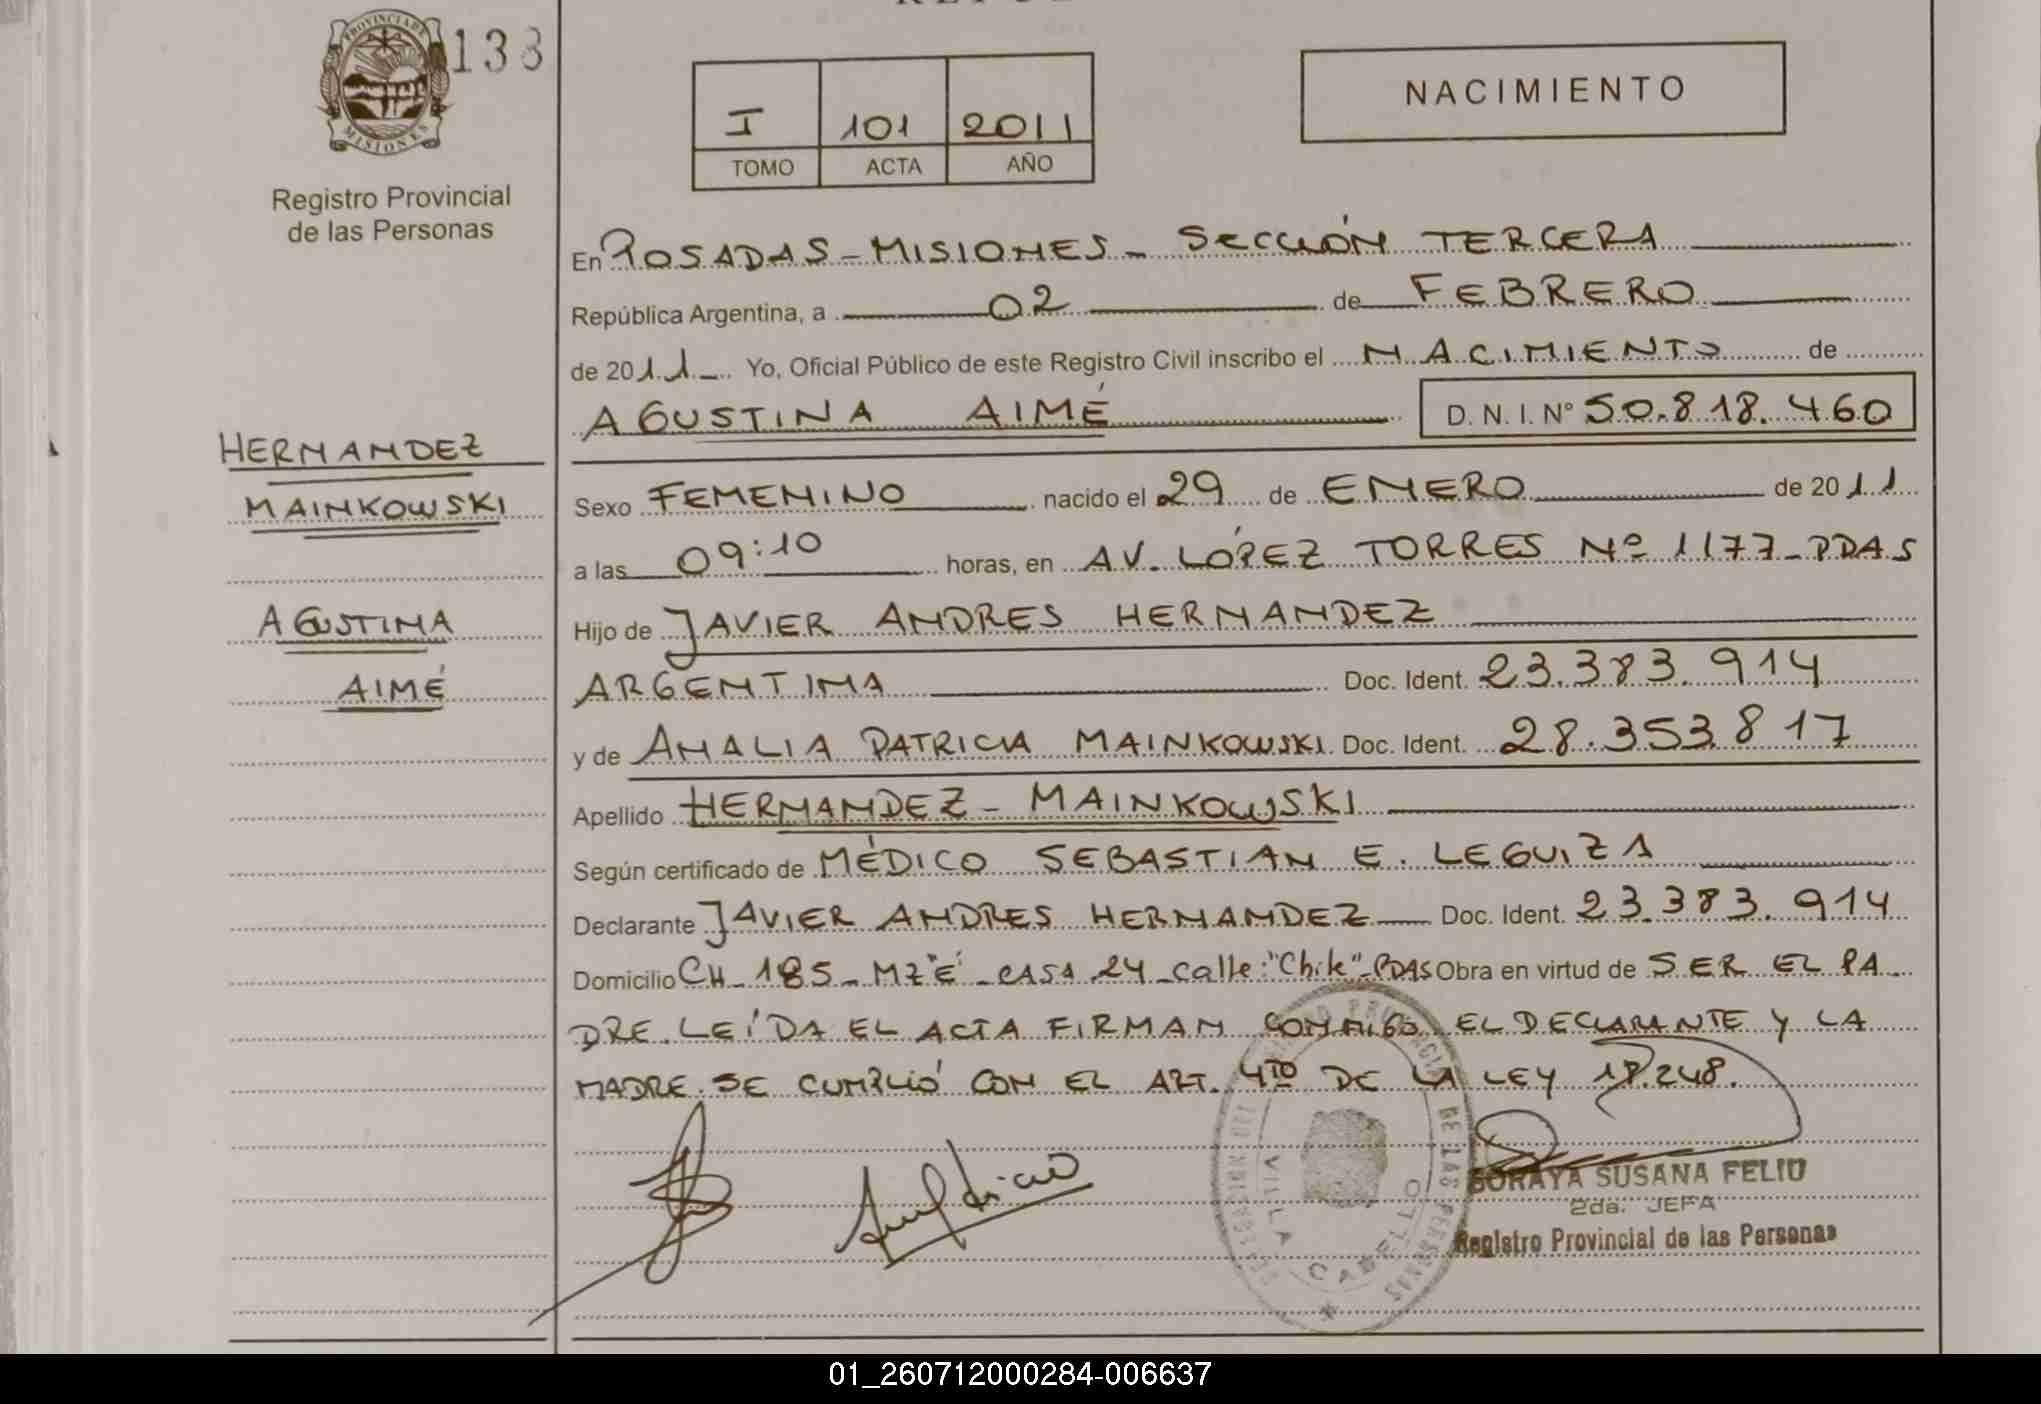 PROVINCIA DE
MISIONES
133
Registro Provincial
de las Personas
I 101 2011
TOMO ACTA AÑO
NACIMIENTO
En POSADAS - MISIONES - SECCIÓN TERCERA
República Argentina, a 02 de FEBRERO
de 2011 Yo, Oficial Público de este Registro Civil inscribo el NACIMIENTO de
AGUSTINA AIMÉ D. N. I. N° 50.818.460
HERNANDEZ
MAINKOWSKI
AGUSTINA
AIMÉ
Sexo FEMENINO nacido el 29 de ENERO de 2011
a las 09:10 horas, en AV. LÓPEZ TORRES Nº 1177 - PDAS
Hijo de JAVIER ANDRES HERNANDEZ
ARGENTINA Doc. Ident. 23.383.914
y de AMALIA PATRICIA MAINKOWSKI Doc. Ident. 28.353.817
Apellido HERNANDEZ - MAINKOWSKI
Según certificado de MÉDICO SEBASTIAN E. LEGUIZA
Declarante JAVIER ANDRES HERNANDEZ Doc. Ident. 23.383.914
Domicilio CH - 185 - MZ"E" - CASA 24 - calle: "Chile" - PDAS Obra en virtud de SER EL PA
DRE. LEÍDA EL ACTA FIRMAN CONMIGO EL DECLARANTE Y LA
MADRE. SE CUMPLIÓ CON EL ART. 4TO DE LA LEY 18.248.
VILLA CABELLO
SORAYA SUSANA FELIU
2da. JEFA
Registro Provincial de las Personas
01_260712000284-006637